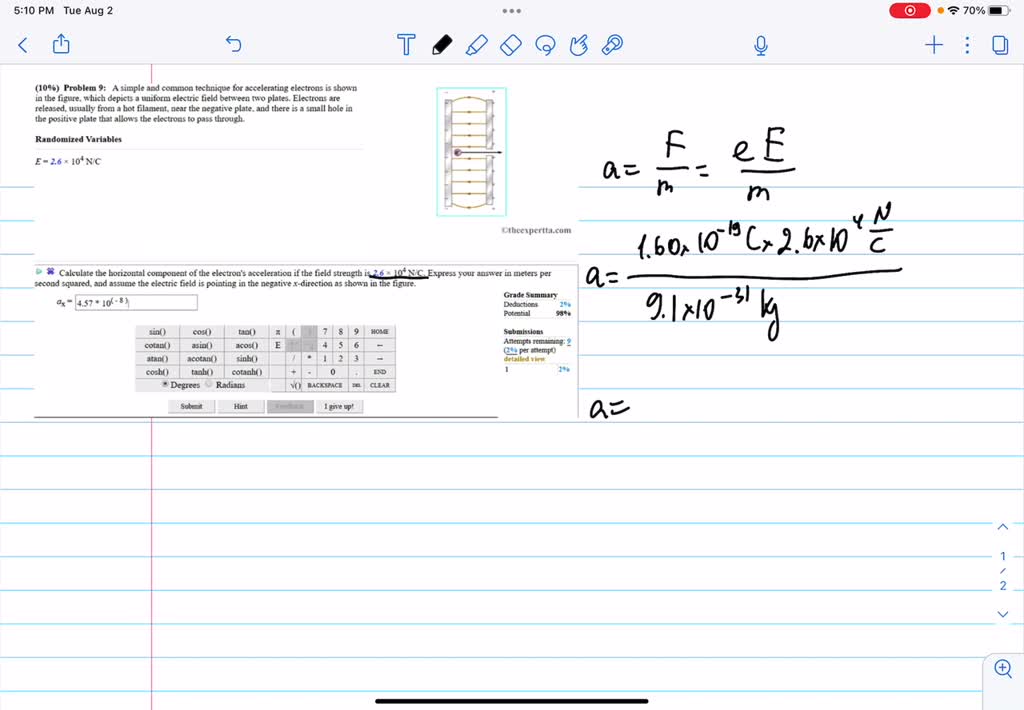 5:10 PM Tue Aug 2
70%
(10%) Problem 9: A simple and common technique for accelerating electrons is shown
in the figure, which depicts a uniform electric field between two plates. Electrons are
released, usually from a hot filament, near the negative plate, and there is a small hole in
the positive plate that allows the electrons to pass through.
Randomized Variables
E = 2.6 × 10⁴ N/C
©theexpertta.com
Calculate the horizontal component of the electron's acceleration if the field strength is 2.6 × 10⁴ N/C. Express your answer in meters per
second squared, and assume the electric field is pointing in the negative x-direction as shown in the figure.
aₓ = 4.57 * 10(-8)
Grade Summary
Deductions 2%
Potential 98%
Submissions
Attempts remaining: 9
(2% per attempt)
detailed view
1 2%
sin() cos() tan() π ( 7 8 9 HOME
cotan() asin() acos() E 4 5 6
atan() acotan() sinh() / * 1 2 3
cosh() tanh() cotanh() + - 0 . END
Degrees Radians √() BACKSPACE DEL CLEAR
Submit Hint Feedback I give up!
a = F/m = eE/m
a = 1.60 × 10⁻¹⁹ C × 2.6 × 10⁴ N/C
9.1 × 10⁻³¹ kg
a =
1
/
2